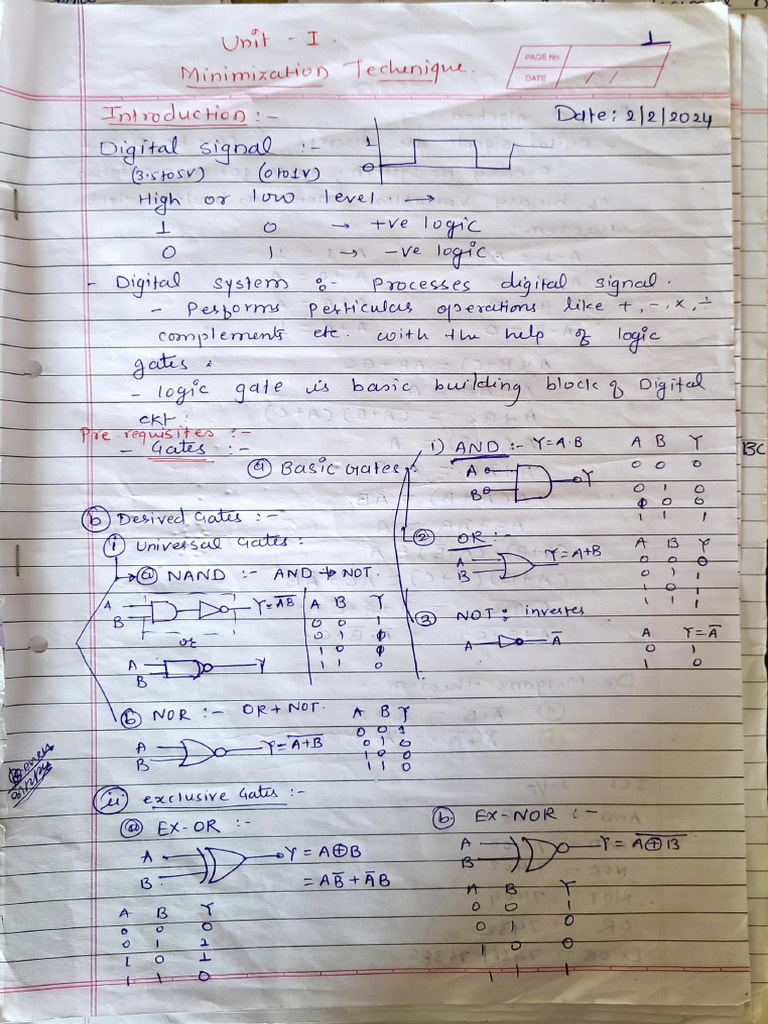 1
Unit - I.
Minimization Technique.
PAGE No.
DATE / /
Introduction :-
Date: 2/2/2024
Digital signal :- 1
0
(3.5to5V) (0to1V)
High or low level. →
1 0 → +ve logic
0 1 → -ve logic.
- Digital system :- Processes digital signal.
- Performs perticular operations like +, -, ×, ÷
complements etc. with the help of logic
gates.
- logic gate is basic building block of Digital
ckt.
Pre requisites :-
- Gates :-
a Basic Gates :
1) AND :- Y=A·B
A B Y
0 0 0
0 1 0
1 0 0
1 1 1
A
B
Y
2 OR :-
A
B
Y=A+B
A B Y
0 0 0
0 1 1
1 0 1
1 1 1
3 NOT : inverter
A A̅
A Y=A̅
0 1
1 0
b Derived Gates :-
i Universal Gates :
a NAND :- AND + NOT.
A
B
Y=A̅B̅
or
A
B
Y
A B Y
0 0 1
0 1 1
1 0 1
1 1 0
b NOR :- OR + NOT.
A
B
Y=A̅+̅B̅
A B Y
0 0 1
0 1 0
1 0 0
1 1 0
ii exclusive Gates :-
a EX-OR :-
A
B
Y = A⊕B
= AB̅ + A̅B
A B Y
0 0 0
0 1 1
1 0 1
1 1 0
b. EX-NOR :-
A
B
Y= A̅⊕̅B̅
A B Y
0 0 1
0 1 0
1 0 0
1 1 1
BC